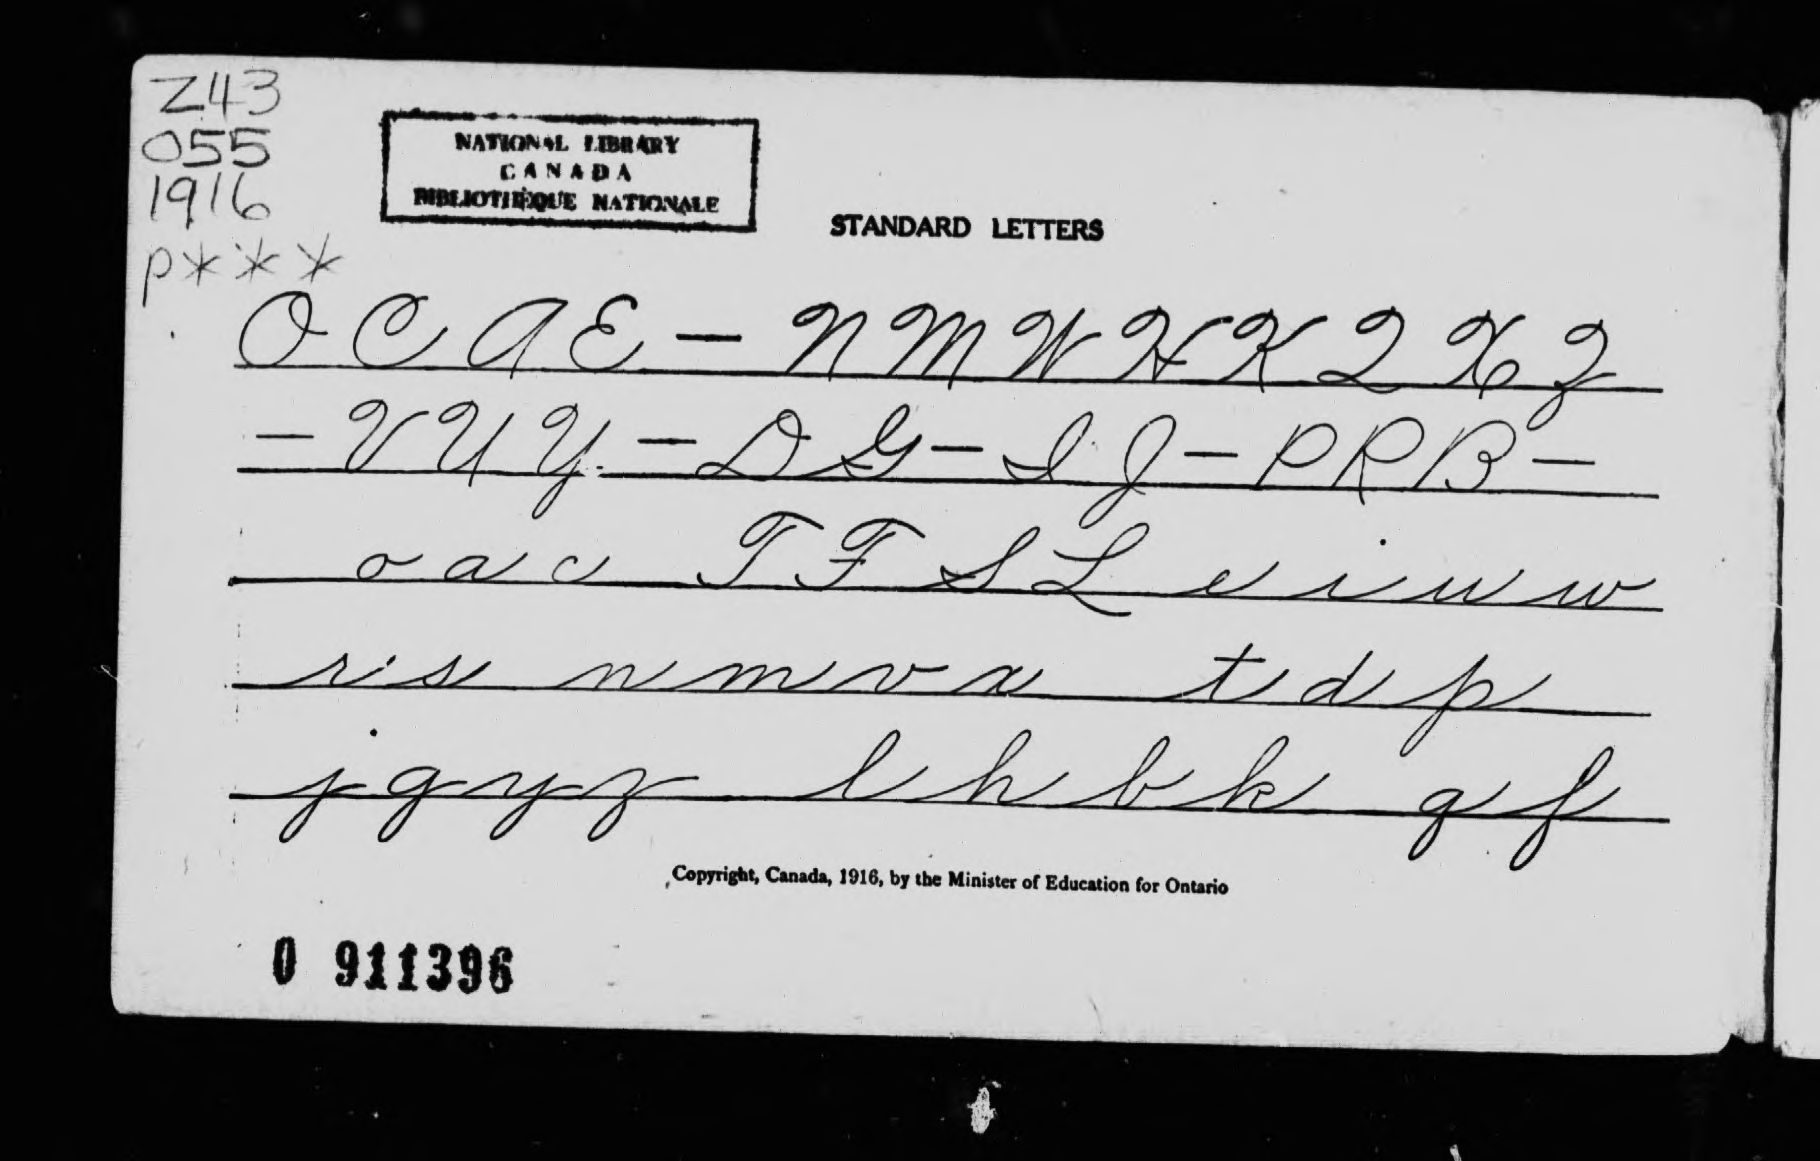 Z43
055
1916
P***
NATIONAL LIBRARY
CANADA
BIBLIOTHÈQUE NATIONALE
STANDARD LETTERS
O C A E — N M W H K Q X Z
— V U Y — D G — I J — P R B —
o a c T F S L e i u w
r s n m v x t d p
j g y z l h b k q f
Copyright, Canada, 1916, by the Minister of Education for Ontario
0 911396